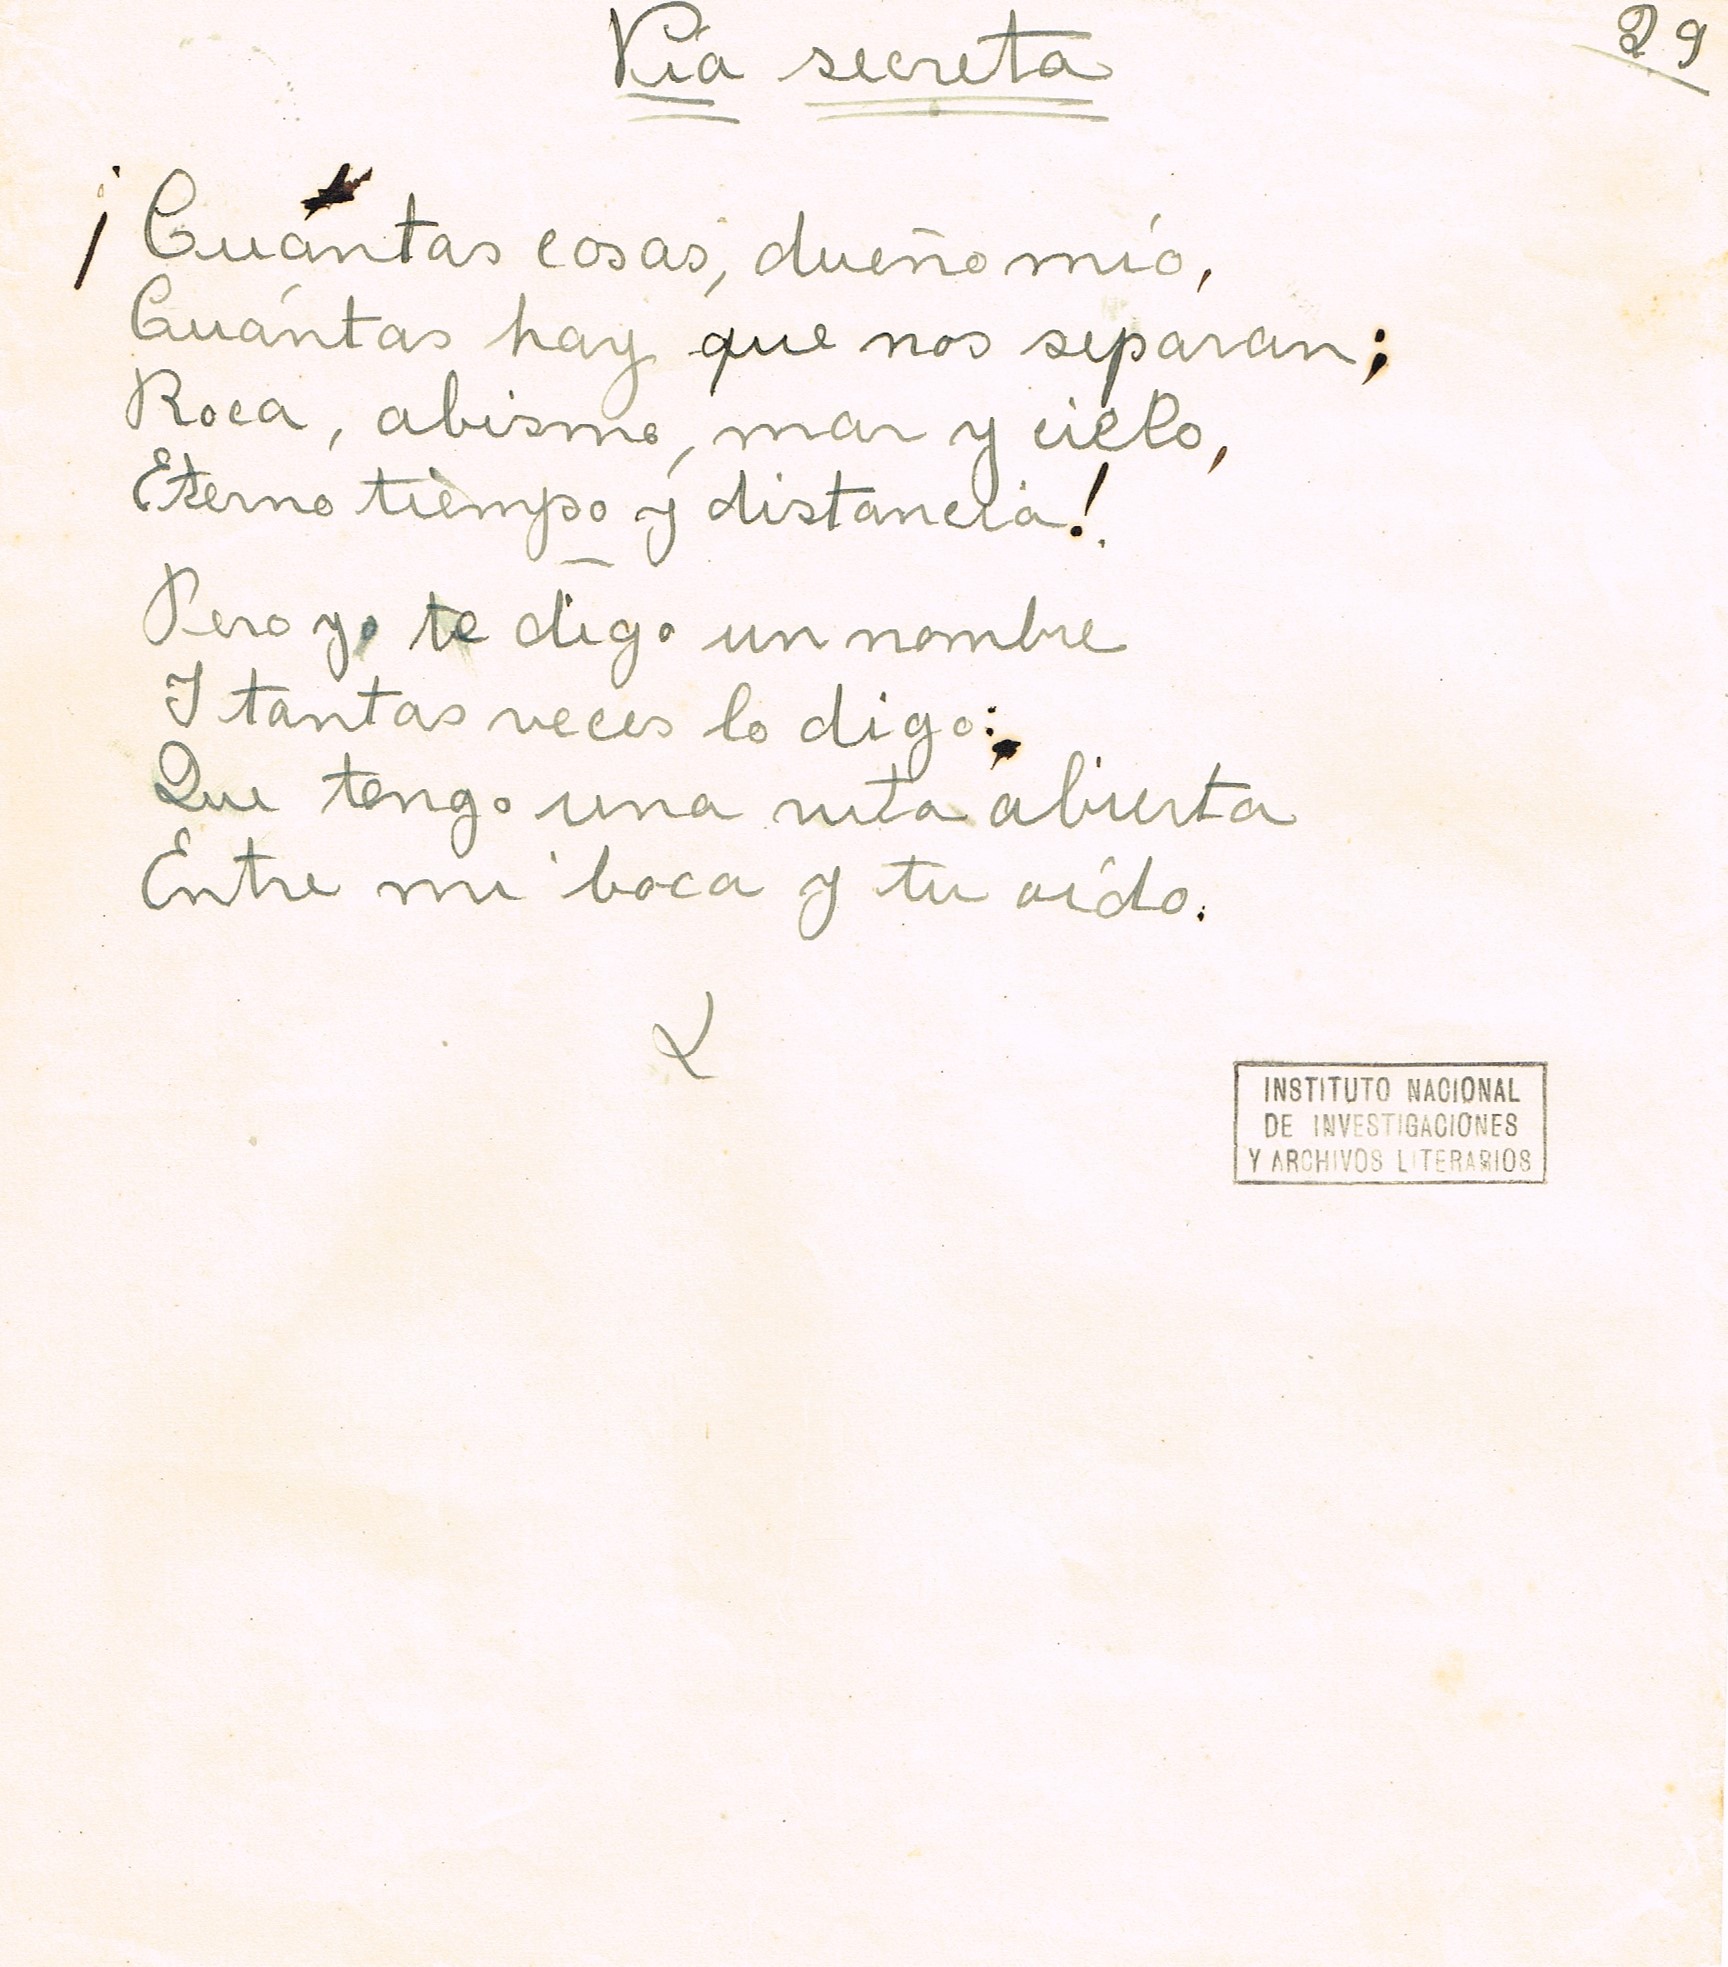 Vía secreta
29
¡Cuántas cosas, dueño mío,
Cuántas hay que nos separan;
Roca, abismo, mar y cielo,
Eterno tiempo y distancia!
Pero yo te digo un nombre
I tantas veces lo digo:
Que tengo una ruta abierta
Entre mi boca y tu oído.
INSTITUTO NACIONAL
DE INVESTIGACIONES
Y ARCHIVOS LITERARIOS